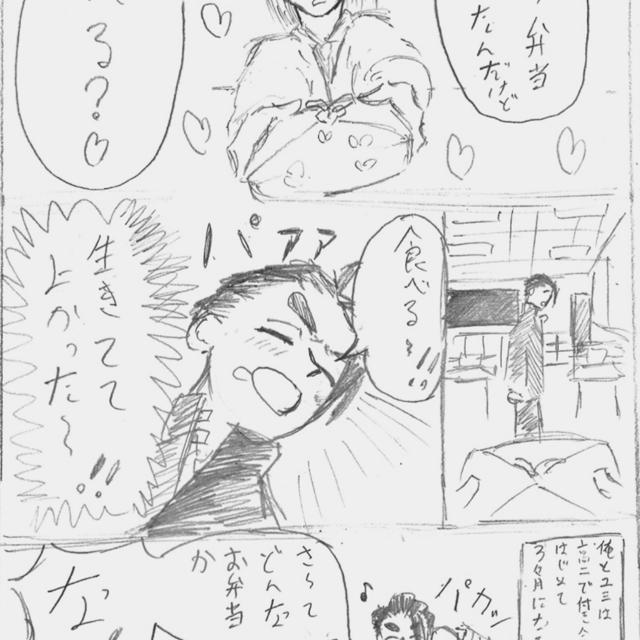 弁当
なんだけど
る？
食べるぅ!!
パァァァ
生きてて
よかった〜!!
俺とユミは
高二で付き
はじめて
3ヶ月
パカッ
♪
さぁて
どんな
お弁当
か
なっ